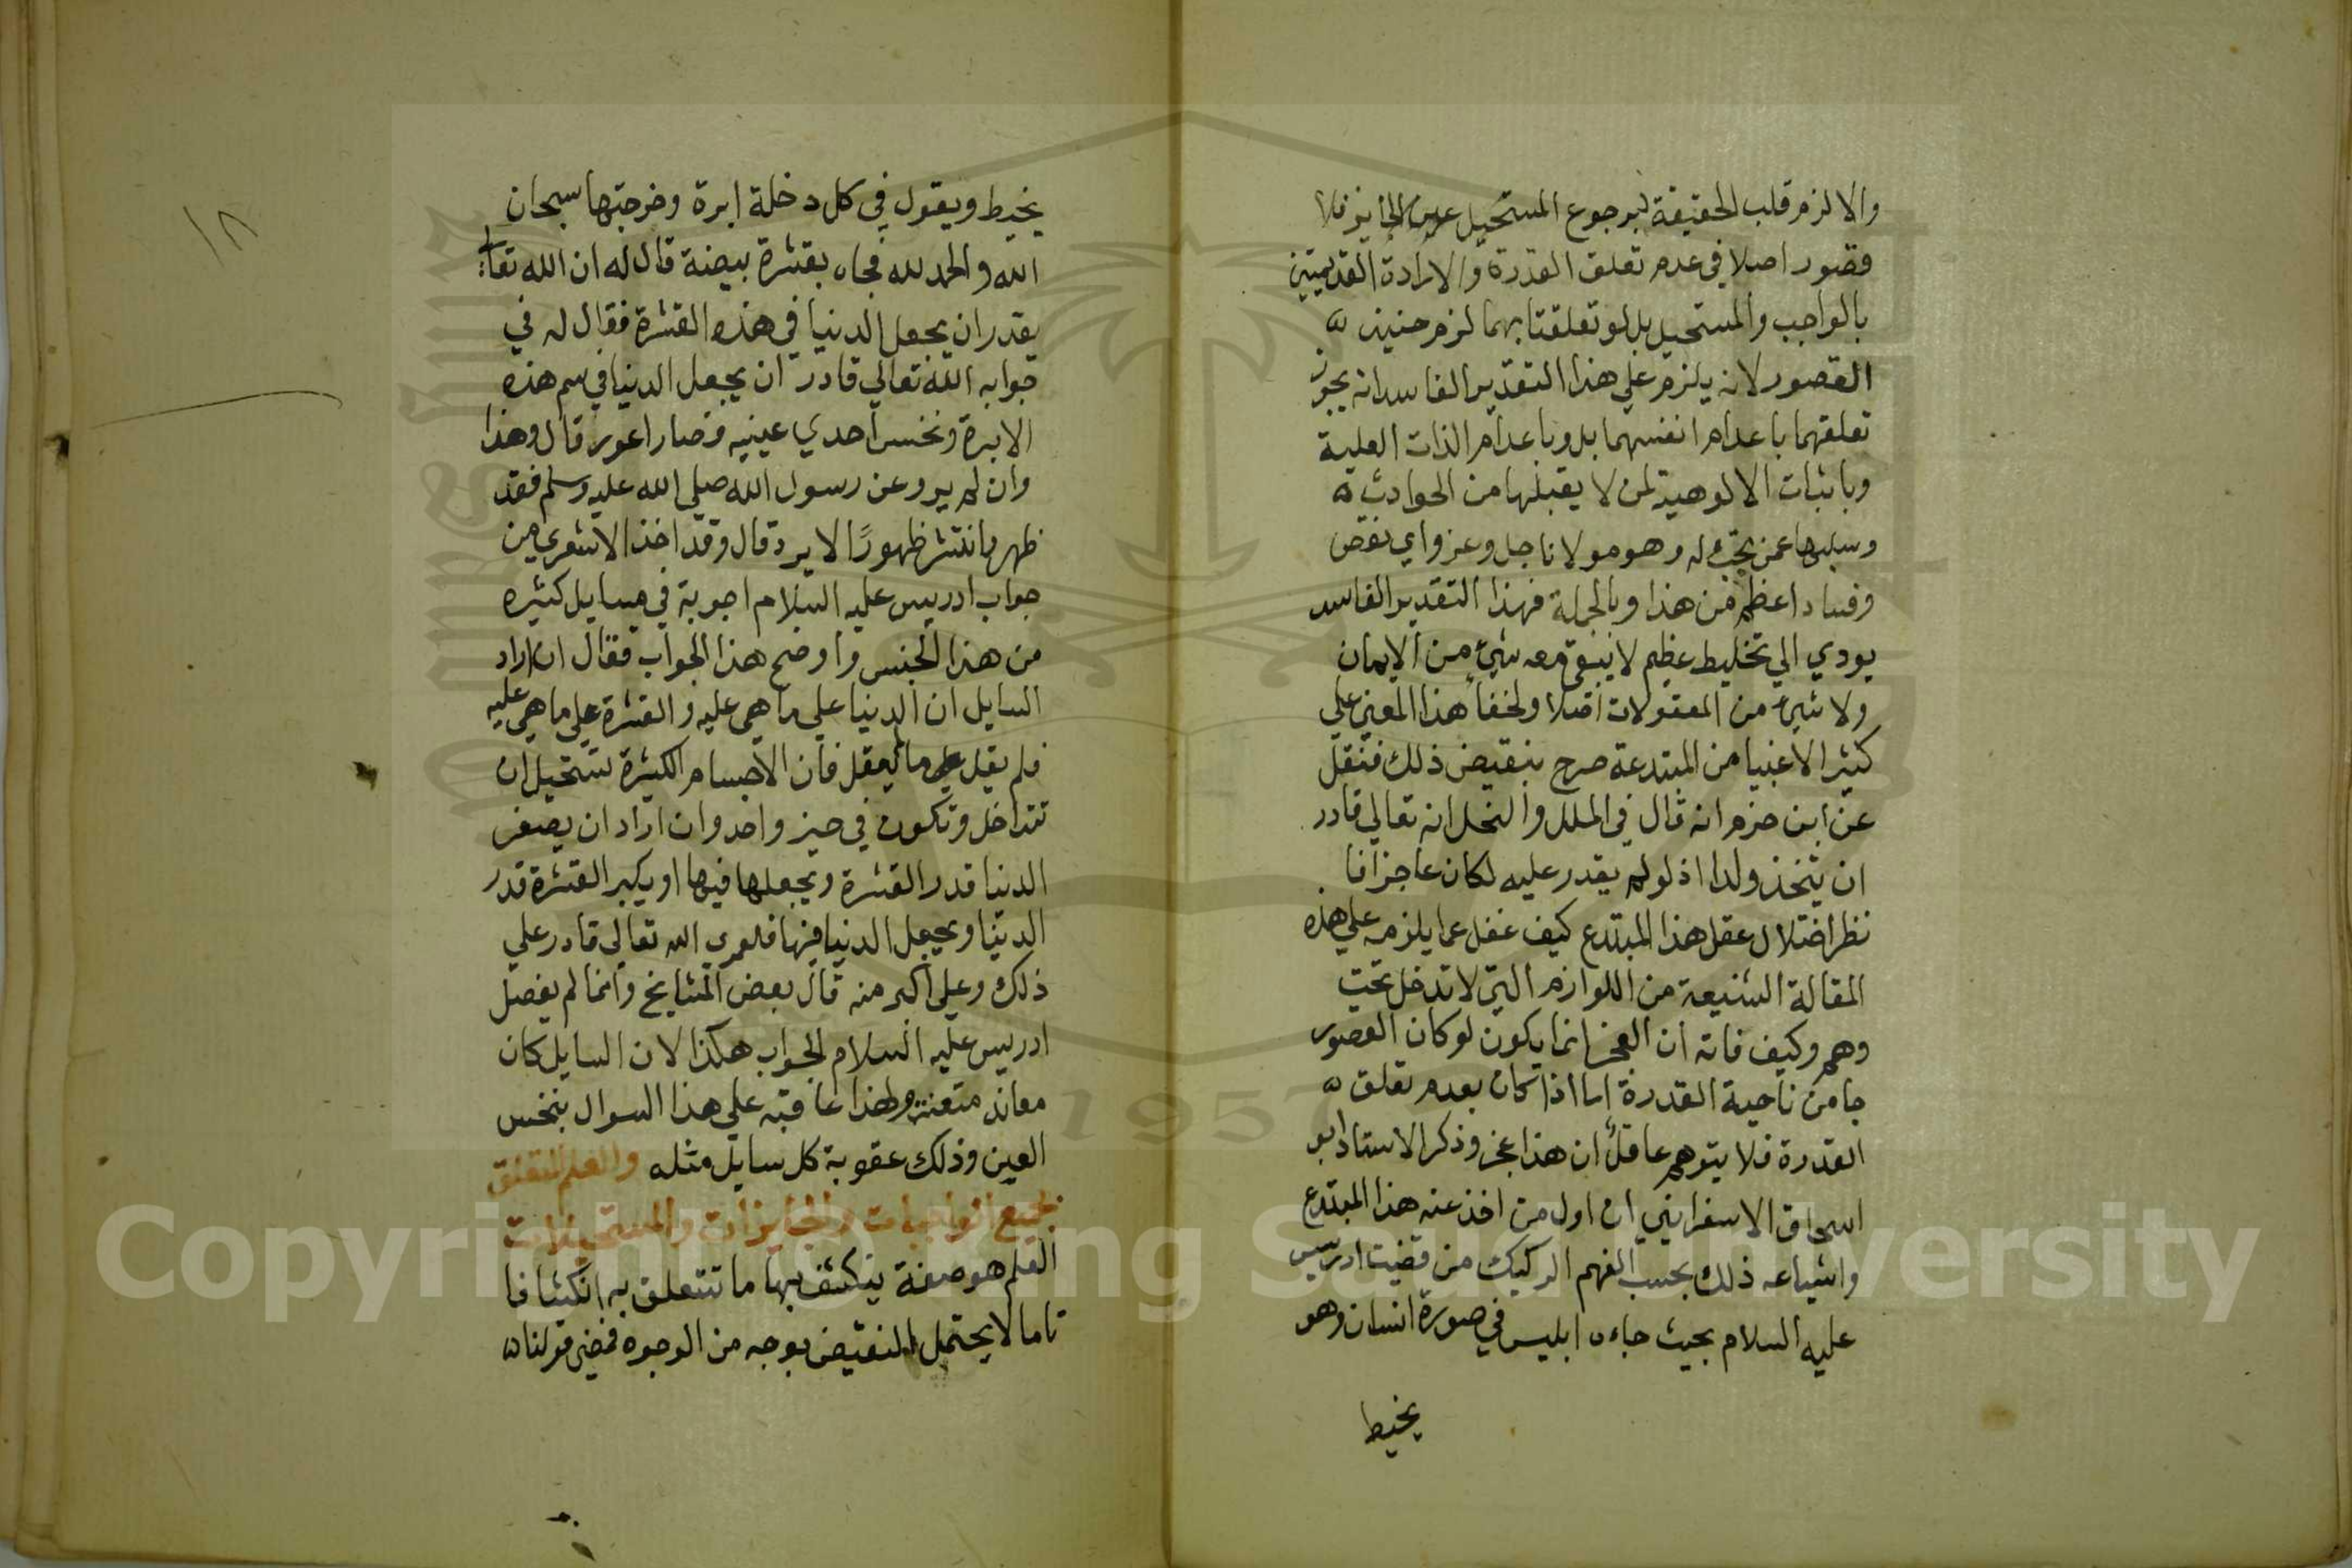 والا لزم قلب الحقيقة برجوع المستحيل عين الجايز فلا
قصور اصلا في عدم تعلق القدرة والارادة القديمتين
بالواجب والمستحيل بل لو تعلقتا بهما لزم حينيذ
القصور لانه يلزم علي هذا التقدير الفاسد انه يجوز
تعلقهما باعدام انفسهما بل وباعدام الذات العلية
وباثبات الالوهية لمن لا يقبلها من الحوادث
وسلبها عمن تجب له وهو مولانا جل وعز واي نقص
وفساد اعظم من هذا وبالجملة فهذا التقدير الفاسد
يودي الي تخليط عظيم لا يبقي معه شيء من الايمان
ولا شيء من المعقولات اصلا ولخفاء هذا المعني علي
كثير الاغبيا من المبتدعة صرح بنقيض ذلك فنقل
عن ابن حزم انه قال في الملل والنحل انه تعالي قادر
ان يتخذ ولدا اذ لو لم يقدر عليه لكان عاجزا فا
نظر اختلال عقل هذا المبتدع كيف غفل عما يلزم علي هذه
المقالة الشنيعة من اللوازم التي لا تدخل تحت
وهم وكيف فاته ان العجز انما يكون لو كان القصور
جا من ناحية القدرة اما اذا كان بعدم تعلق
القدرة فلا يتوهم عاقل ان هذا عجز وذكر الاستاد ابو
اسحاق الاسفرايني ان اول من اخذ عنه هذا المبتدع
واشياعه ذلك بحسب الفهم الركيك من قضيت ادريس
عليه السلام بحيث جاءه ابليس في صورة انسان وهو
يخيط
١٨
يخيط ويقول في كل دخلة ابرة وخرجتها سبحان
الله والحمد لله فجاه بقشرة بيضة قال له ان الله تعالي
يقدر ان يجعل الدنيا في هذه القشرة فقال له في
جوابه الله تعالي قادر ان يجعل الدنيا في سم هذه
الابرة ونخس احدي عينيه فصار اعور قال وهذا
وان لم يرو عن رسول الله صلي الله عليه وسلم فقد
ظهر وانتشر ظهورًا لا يرد قال وقد اخذ الاشعري من
جواب ادريس عليه السلام اجوبة في مسايل كثيره
من هذا الجنس واوضح هذا الجواب فقال ان اراد
السايل ان الدنيا علي ما هي عليه والقشرة علي ما هي عليه
فلم يقل ما يعقل فان الاجسام الكثيرة تستحيل ان
تتداخل وتكون في حيز واحد وان اراد ان يصغر
الدنيا قدر القشرة ويجعلها فيها او يكبر القشرة قدر
الدنيا ويجعل الدنيا فيها فلعمري الله تعالي قادر علي
ذلك وعلي اكبر منه قال بعض المشايخ وانما لم يفصل
ادريس عليه السلام الجواب هكذا لان السايل كان
معاند متعنت ولهذا عاقبه علي هذا السوال بنخس
العين وذلك عقوبة كل سايل مثله والعلم المتعلق
بجميع الواجبات والجايزات والمستحيلات
العلم هو صفة ينكشف بها ما تتعلق به انكشافا
تاما لا يحتمل النقيض بوجه من الوجوه فمضي قولنا
Copyright © King Saud University
1957